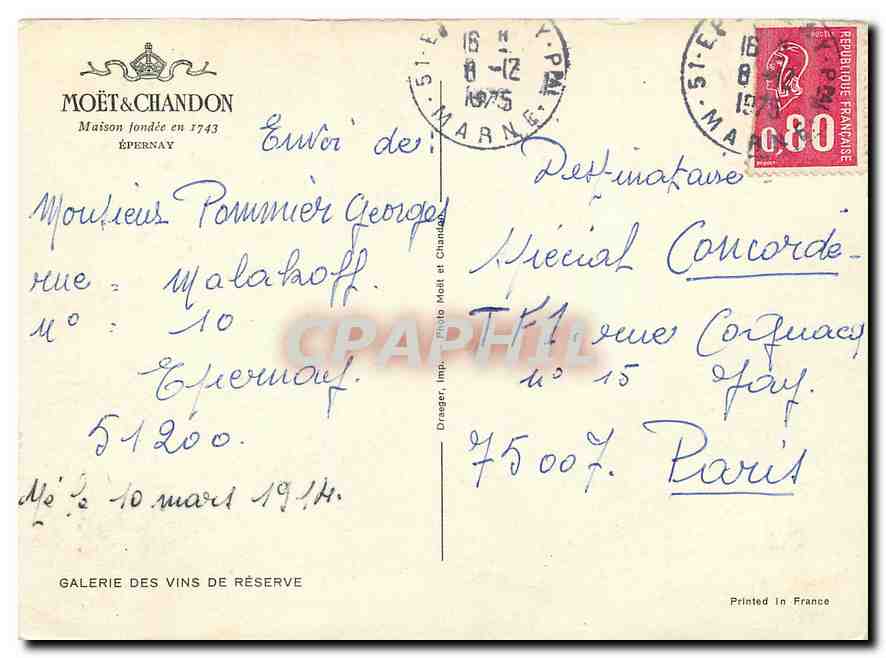 MOËT & CHANDON
Maison fondée en 1743
ÉPERNAY
Envoi de:
Monsieur Pommier Georges
rue = Malakoff.
N° = 10
Epernay.
51200.
Né le 10 mars 1914.
GALERIE DES VINS DE RÉSERVE
Draeger, Imp. Photo Moët et Chandon
CPAPHIL
16 H
8 -12
1975
51 - EP Y - PAL
MARNE
16
8 -12
1975
51 - EP Y - P
MARNE
POSTES
RÉPUBLIQUE FRANÇAISE
0,80
Destinataire
Spécial Concorde
TF1. rue Cognacq
n° 15 Jay.
75007. Paris
Printed in France